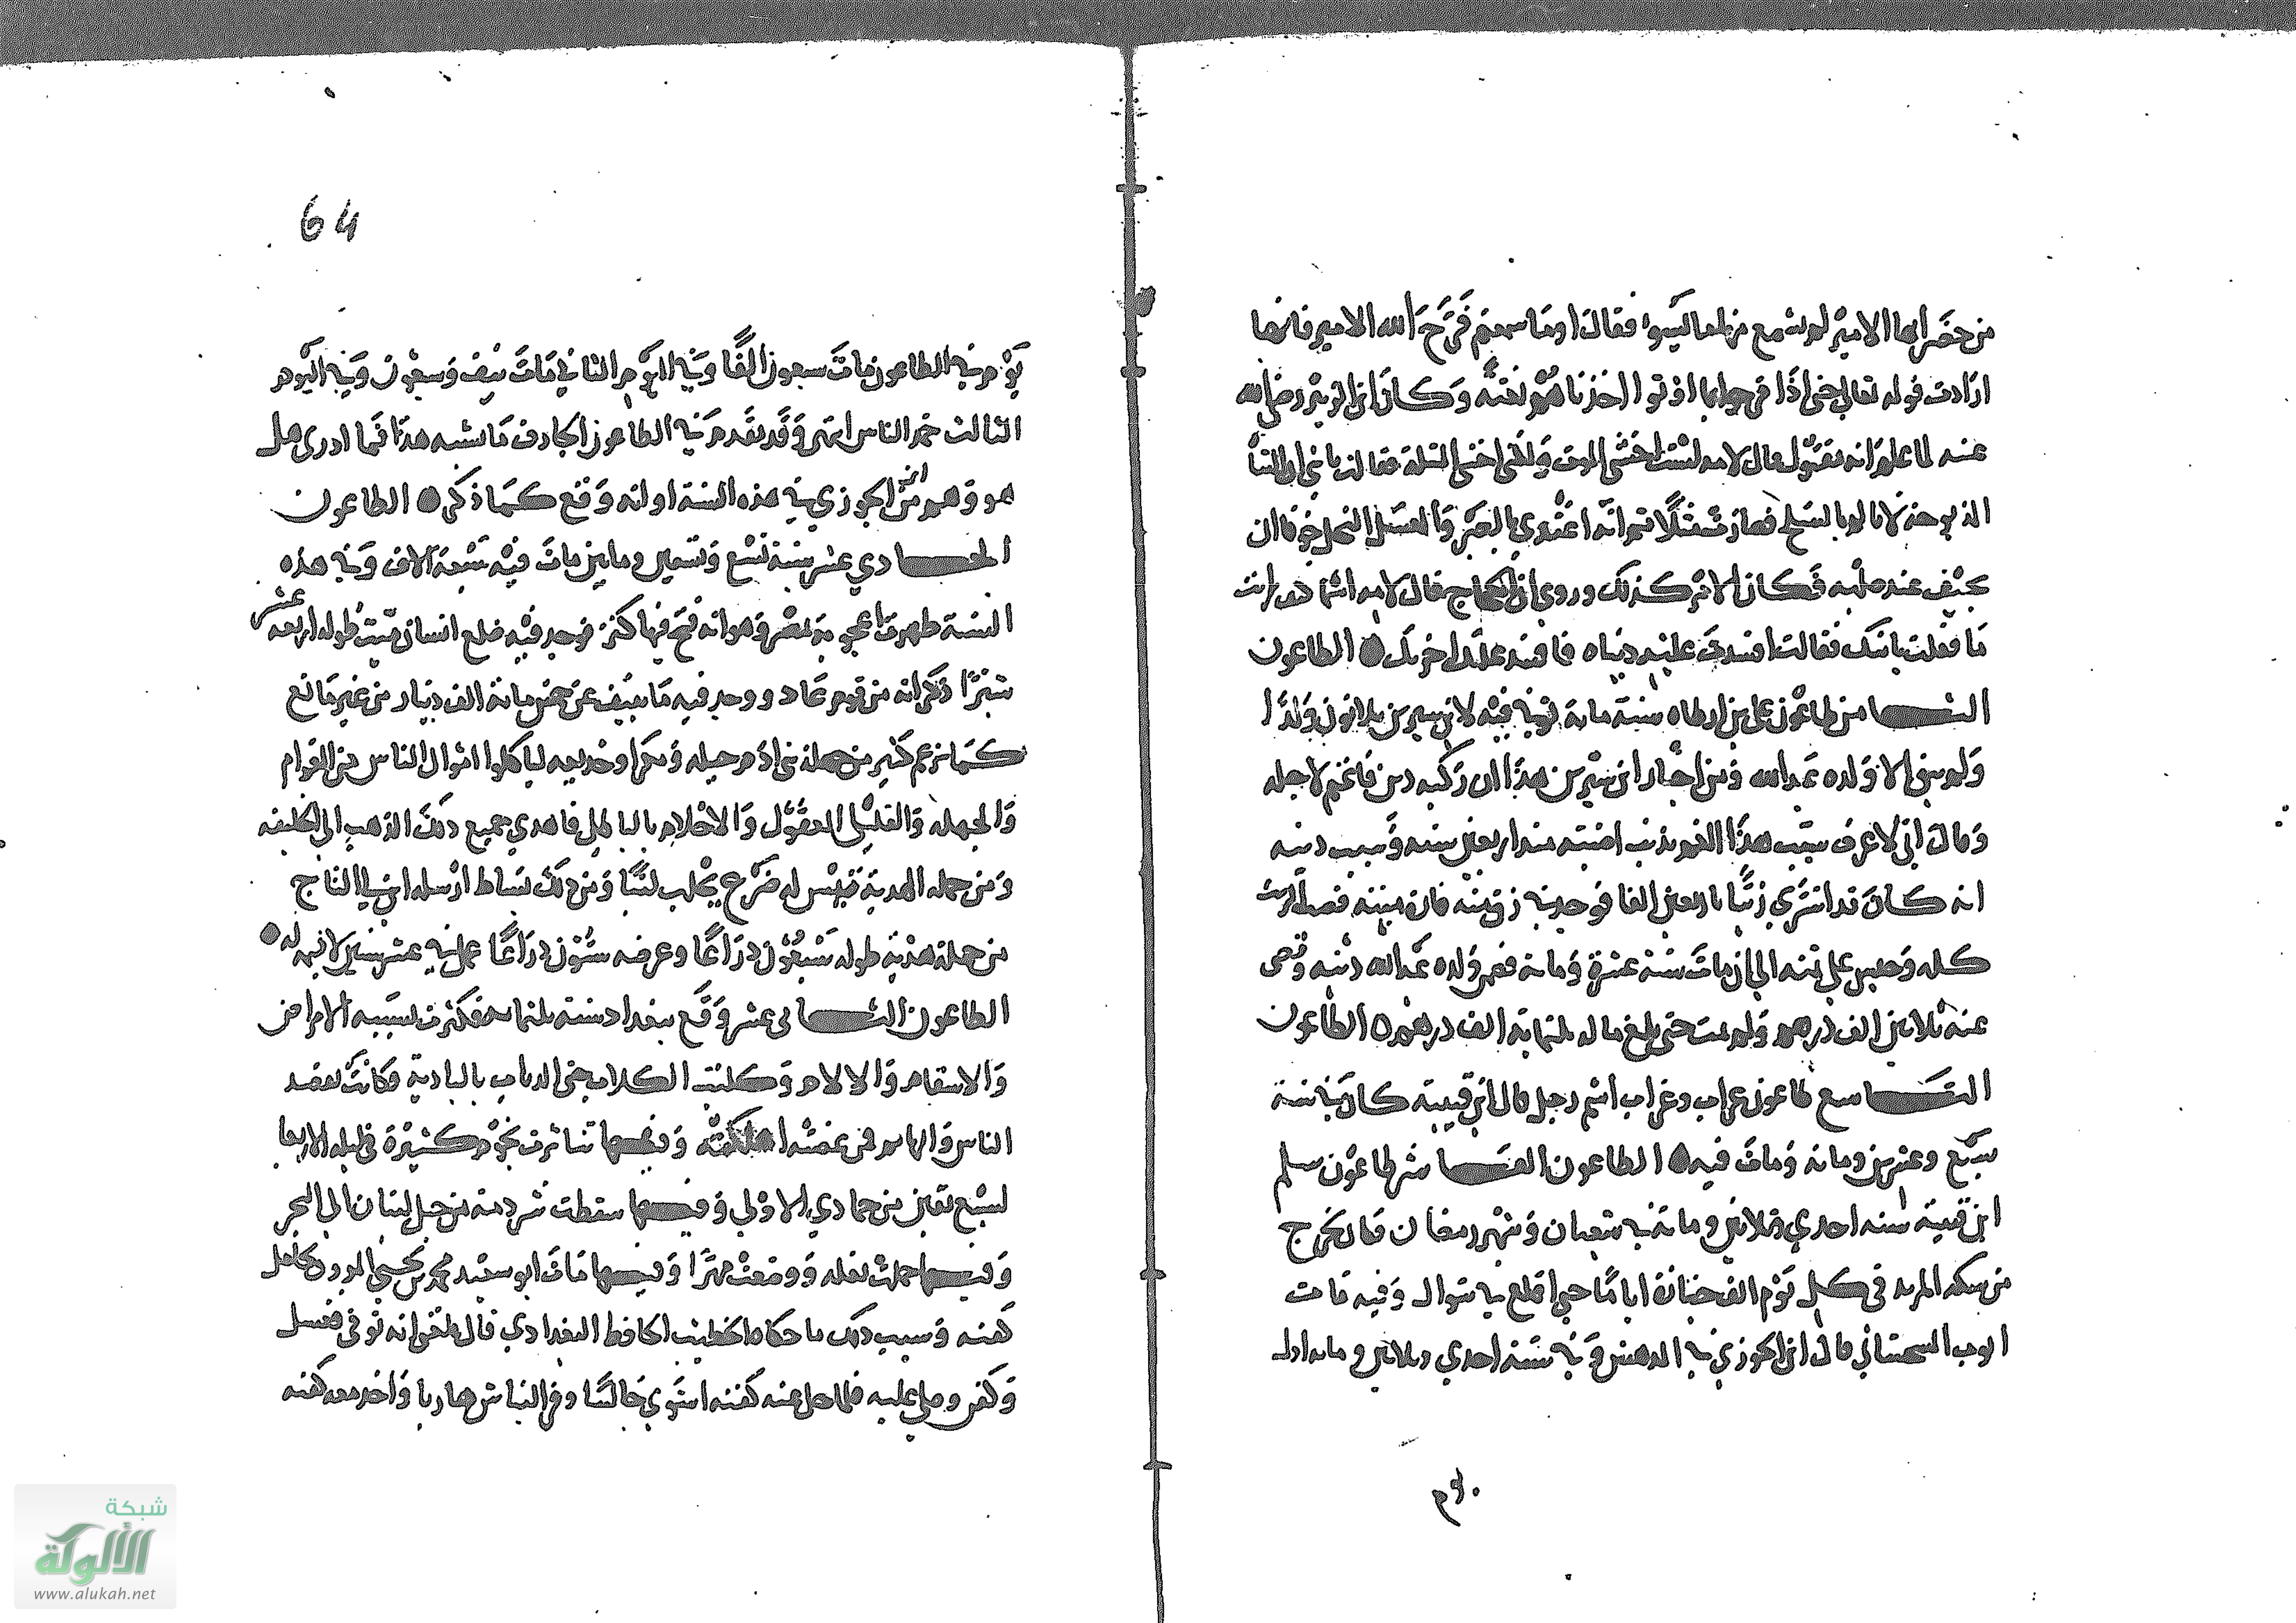 من حضر ايها الامير لم يسمع منها ما ليسوا فقال او ما سمعتم فرح الله الامير فانها
ارادت قوله تعالي حتى اذا فرحوا بما اوتوا اخذناهم بغتة وكان ابن الزبير رضي الله
عنه لما علم انه مقتول قال لامه لست اخشى الموت ولكني اخشى المثلة فقالت يا بني ان الشاة
المذبوحة لا تالم بالسلخ فصار مثلا ثم انه اعتدى بالصبر والعسل النحل خوفا ان
يجيف عند صلبه فكان الامر كذلك وروي ان الحجاج قال لامه اسما كيف رايت
ما فعلت بابنك فقالت افسدت عليه دنياه فافسد عليك اخرتك الطاعون
الثامن طاعون علي بن ارطاه سنة ماية توفي فيه لابن سيرين ثلاثون ولدا
ولم يبق الا ولده عبد الله ومن اخبار ابن سيرين هذا ان ركبه دين فاغتم لاجله
وقال اني لاعرف سبب هذا الغم بذنب اصبته منذ اربعين سنه وسبب دينه
انه كان قد اشترى زيتا باربعين الفا فوجد في زق منه فارة ميتة فصب الزيت
كله وحبس على ثمنه الي ان مات سنة عشرة وماية فضمن ولده عبد الله دينه وقضى
عنه ثلاثين الف درهم ولم يمت حتى بلغ ماله ثلثماية الف درهم الطاعون
التاسع طاعون غراب وغراب اسم رجل قال ابن قتيبة كان في سنة
سبع وعشرين وماية ومات فيه الطاعون العاشر طاعون سلم
ابن قتيبة سنه احدي وثلاثين وماية في شعبان وشهر رمضان فكان يخرج
من سكة المربد في كل يوم الف جنازة اياما حتى اقلع في شوال وفيه مات
ايوب السختياني قال ابن الجوزي في المدهش وفي سنة احدي وثلاثين وماية اول
يوم في الطاعون مات سبعون الفا وفي اليوم الثاني مات نيف وسبعون وفي اليوم
الثالث خمد الناس انتهى وقد تقدم في الطاعون الجارف ما يشبه هذا فما ادرى هل
هو وهم من ابن الجوزي في هذه السنة او انه وقع كما ذكر الطاعون
الحادي عشر سنة تسع وتسعين ومايتين مات فيه تسعة الاف وفي هذه
السنة ظهرت اعجوبة بمصر وهو انه فتح فيها كنز فوجد فيه ضلع انسان ميت طوله اربعة عشر
شبرا ذكر انه من قوم عاد ووجد فيه ما ينيف عن خمس ماية الف دينار من غير مانع
كما زعم كثير من جهلة بني ادم حيله ومكرا وخديعه لياكلوا اموال الناس من العوام
والجهله والقليلي العقول والاحلام بالباطل فاهدي جميع ذلك الذهب الي الخليفه
ومن جملة الهدية تيس له ضرع يحلب لبنا ومن ذلك بساط ارسله ابن ابي الساج
من جملة هدية طوله سبعون ذراعا وعرضه ستون ذراعا عمل في عشر سنين لا قيمة له
الطاعون الثاني عشر وقع ببغداد سنة ثلثماية فكثرت بسببه الامراض
والاسقام والالام وكلبت الكلاب حتى الدياب بالبادية وكانت تقصد
الناس والبهايم فمن عضته اهلكته وفيها تناثرت نجوم كثيرة في ليلة الاربعا
لسبع بقين من جمادي الاولي وفيها سقطت شرذمة من جبل لبنان الي البحر
وفيها حملت بغله ووضعت مهرا وفيها مات ابو سعيد محمد بن يحيى الموروث كامل
كفنه وسبب ذلك ما حكاه الخطيب الحافظ البغدادي قال بلغني انه توفي فغسل
وكفن وصلى عليه فلما حل عنه كفنه استوي جالسا وفر النباش هاربا واخذ معه كفنه
64
شبكة
الألوكة
www.alukah.net